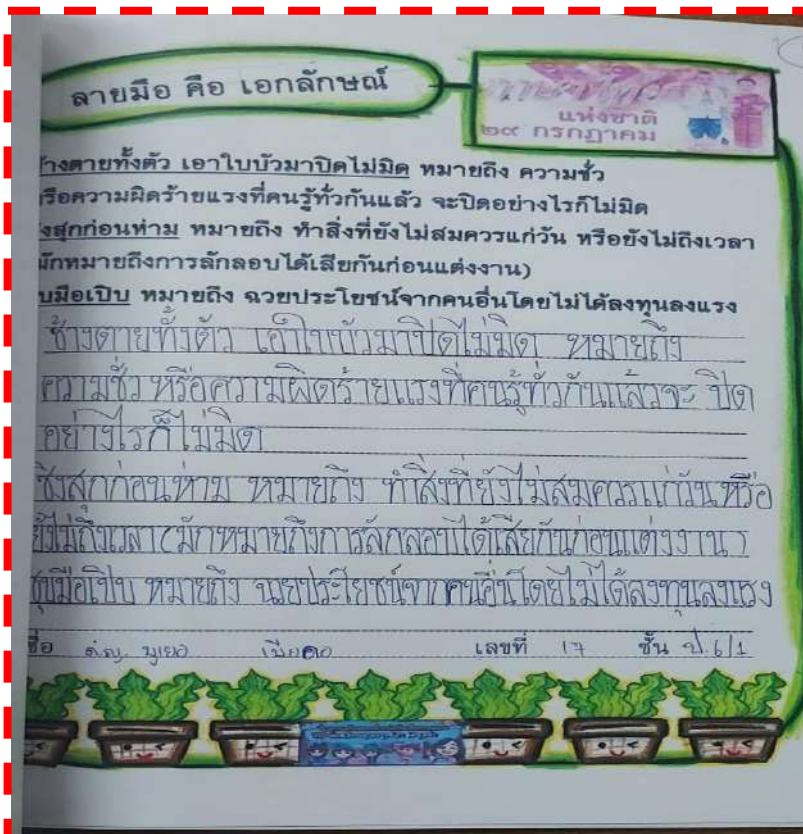 ลายมือ คือ เอกลักษณ์
แห่งชาติ
๒๙ กรกฎาคม
ช้างตายทั้งตัว เอาใบบัวมาปิดไม่มิด หมายถึง ความชั่ว
หรือความผิดร้ายแรงที่คนรู้ทั่วกันแล้ว จะปิดอย่างไรก็ไม่มิด
งสุกก่อนห่าม หมายถึง ทำสิ่งที่ยังไม่สมควรแก่วัน หรือยังไม่ถึงเวลา
มักหมายถึงการลักลอบได้เสียกันก่อนแต่งงาน)
บมือเปิบ หมายถึง ฉวยประโยชน์จากคนอื่นโดยไม่ได้ลงทุนลงแรง
ช้างตายทั้งตัว เอาใบบัวมาปิดไม่มิด หมายถึง
ความชั่ว หรือความผิดร้ายแรงที่คนรู้ทั่วกันแล้วจะ ปิด
อย่างไรก็ไม่มิด
ชิงสุกก่อนห่าม หมายถึง ทำสิ่งที่ยังไม่สมควรแก่วัน หรือ
ยังไม่ถึงเวลา (มักหมายถึงการลักลอบได้เสียกันก่อนแต่งงาน)
ชุบมือเปิบ หมายถึง ฉวยประโยชน์จากคนอื่นโดยไม่ได้ลงทุนลงแรง
ชื่อ ด.ญ. เลขที่ 17 ชั้น ป.6/1